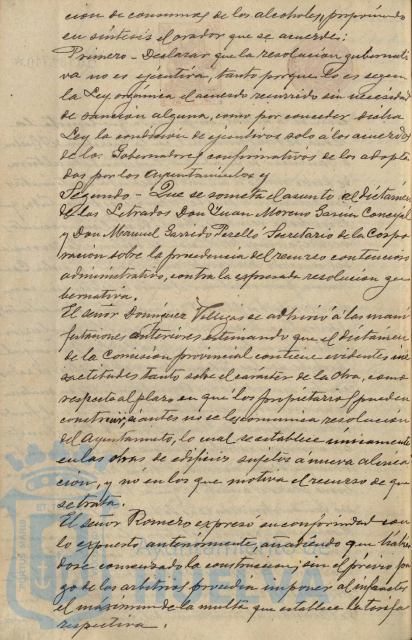 cion de consumos de los alcoholes, proponiendo
en síntesis el orador que se acuerde:
Primero - Declarar que la resolucion gubernati
va no es ejecutiva, tanto porque lo es segun
la Ley orgánica el acuerdo recurrido sin necesidad
de sancion alguna, como por conceder dicha
Ley la condicion de ejecutivos solo á los acuerdos
de los Gobernadores confirmativos de los adopta
dos por los Ayuntamientos y
Segundo - Que se someta el asunto al dictámen
de los Letrados Don Juan Moreno Garcia Concejal
y Don Manuel Garrido Perelló Secretario de la Corpo
racion sobre la procedencia del recurso contencioso
administrativo, contra la expresada resolucion gu
bernativa.
El señor Dominguez Villegas se adhirió á las mani
festaciones anteriores estimando que el dictámen
de la Comision provincial contiene evidentes ine
xactitudes tanto sobre el carácter de la obra, como
respecto al plazo en que los propietarios pueden
construir, si antes no se les comunica resolucion
del Ayuntamiento, lo cual se establece unicamente
en las obras de edificios sujetos á nueva alinea
cion, y nó en los que motiva el recurso de que
se trata.
El señor Romero expresó su conformidad con
lo expuesto anteriormente añadiendo que habien
dose comenzado la construccion, sin el prévio pa
go de los arbitrios procedia imponer al infractor
el maximum de la multa que establece la tarifa
respectiva.
Ayuntamiento de
HUELVA